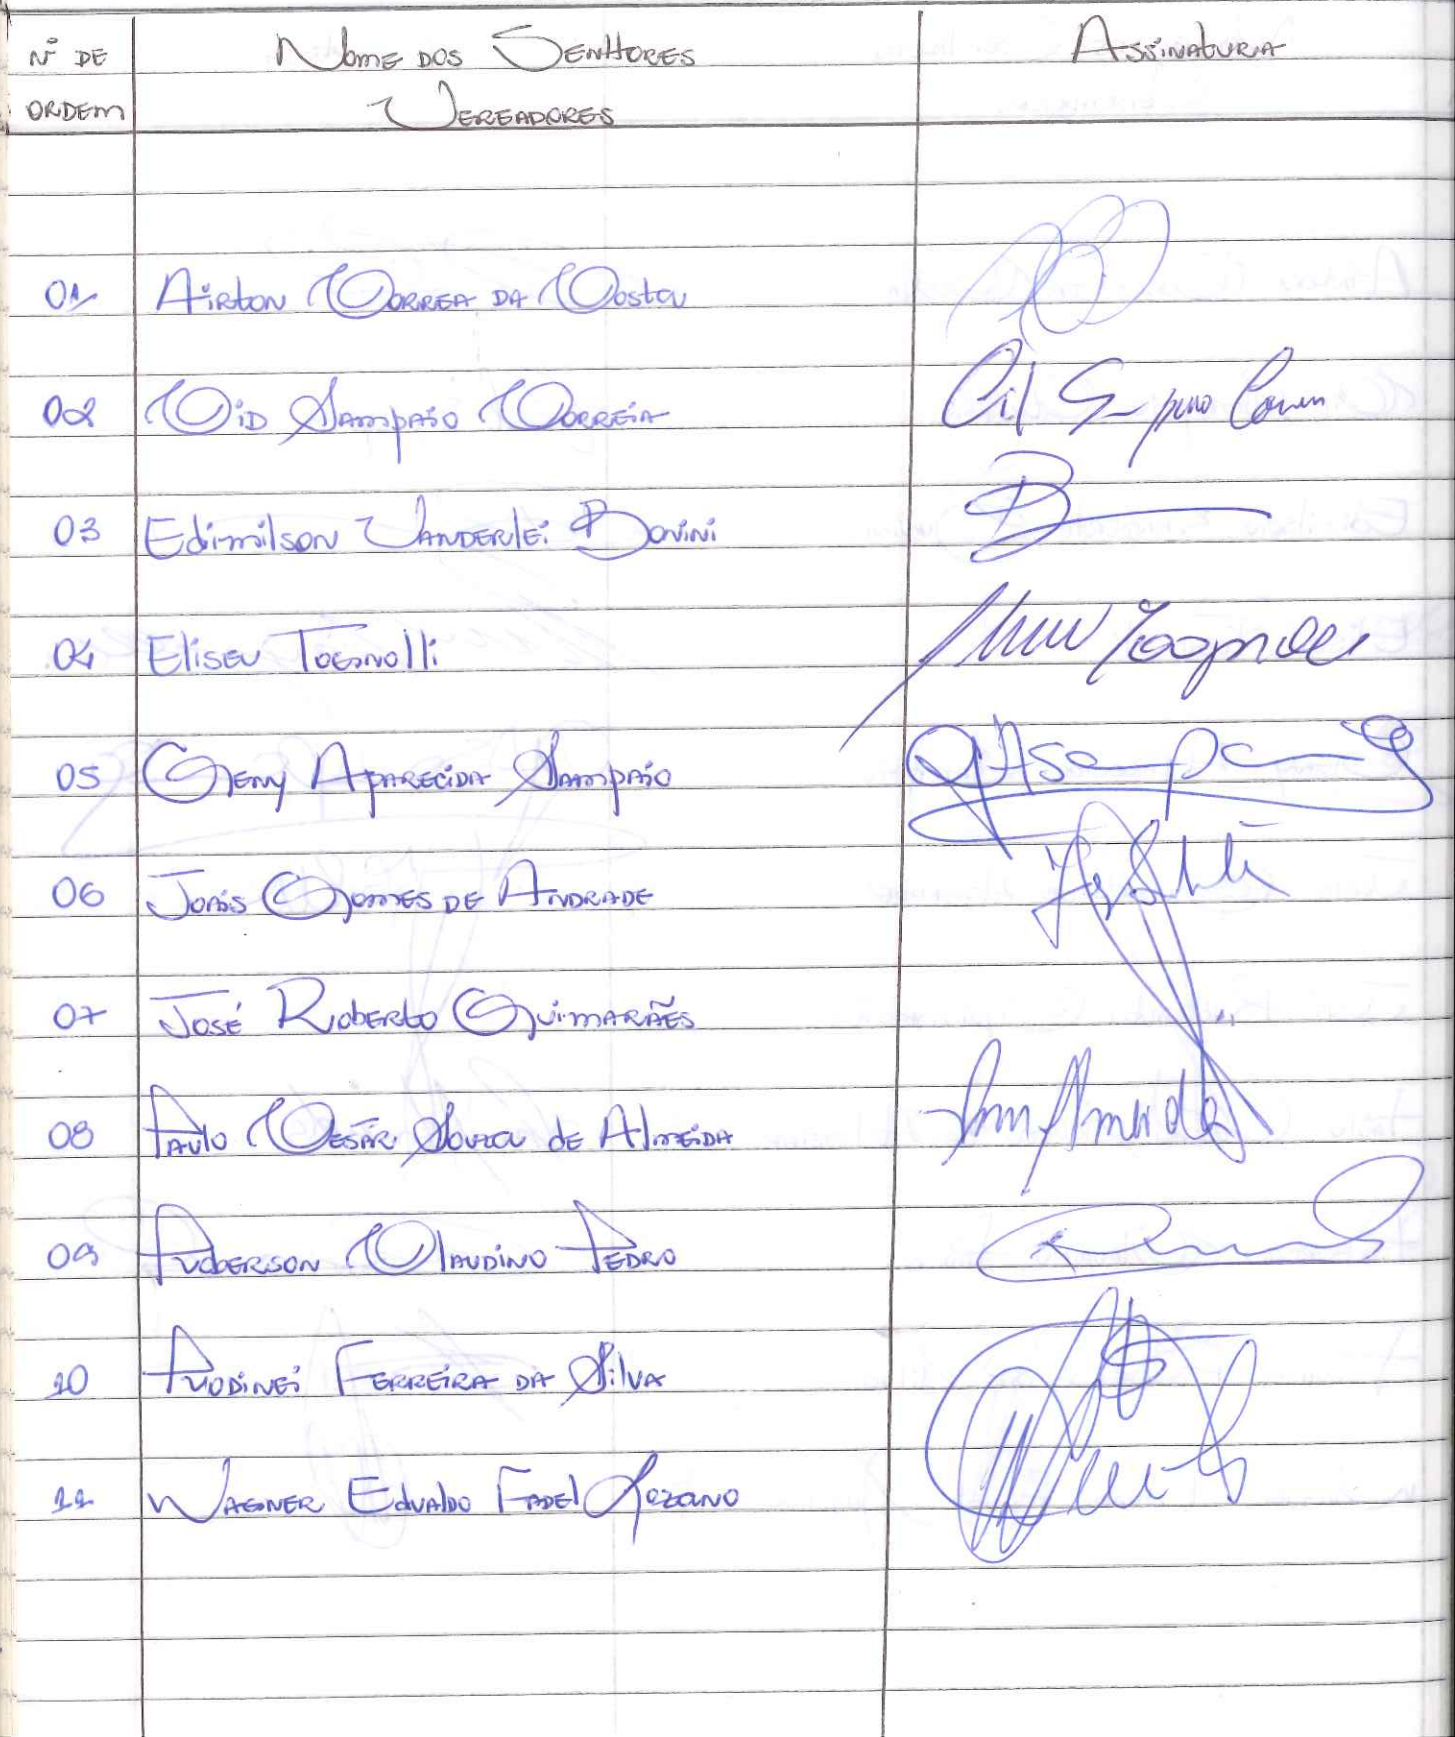 Nº DE Nome dos Senhores Assinatura
ORDEM Vereadores
01 Airton Correa da Costa
02 Cid Sampaio Correia Cid Sampaio Correia
03 Edimilson Vanderlei Bonini
04 Eliseu Tognolli Eliseu Tognolli
05 Geny Aparecida Sampaio GASampaio
06 Jonas Gomes de Andrade
07 José Roberto Guimarães
08 Paulo César Souza de Almeida Almeida
09 Roberson Claudino Pedro
10 Rodinei Ferreira da Silva
11 Wagner Edvaldo Fadel Lozano